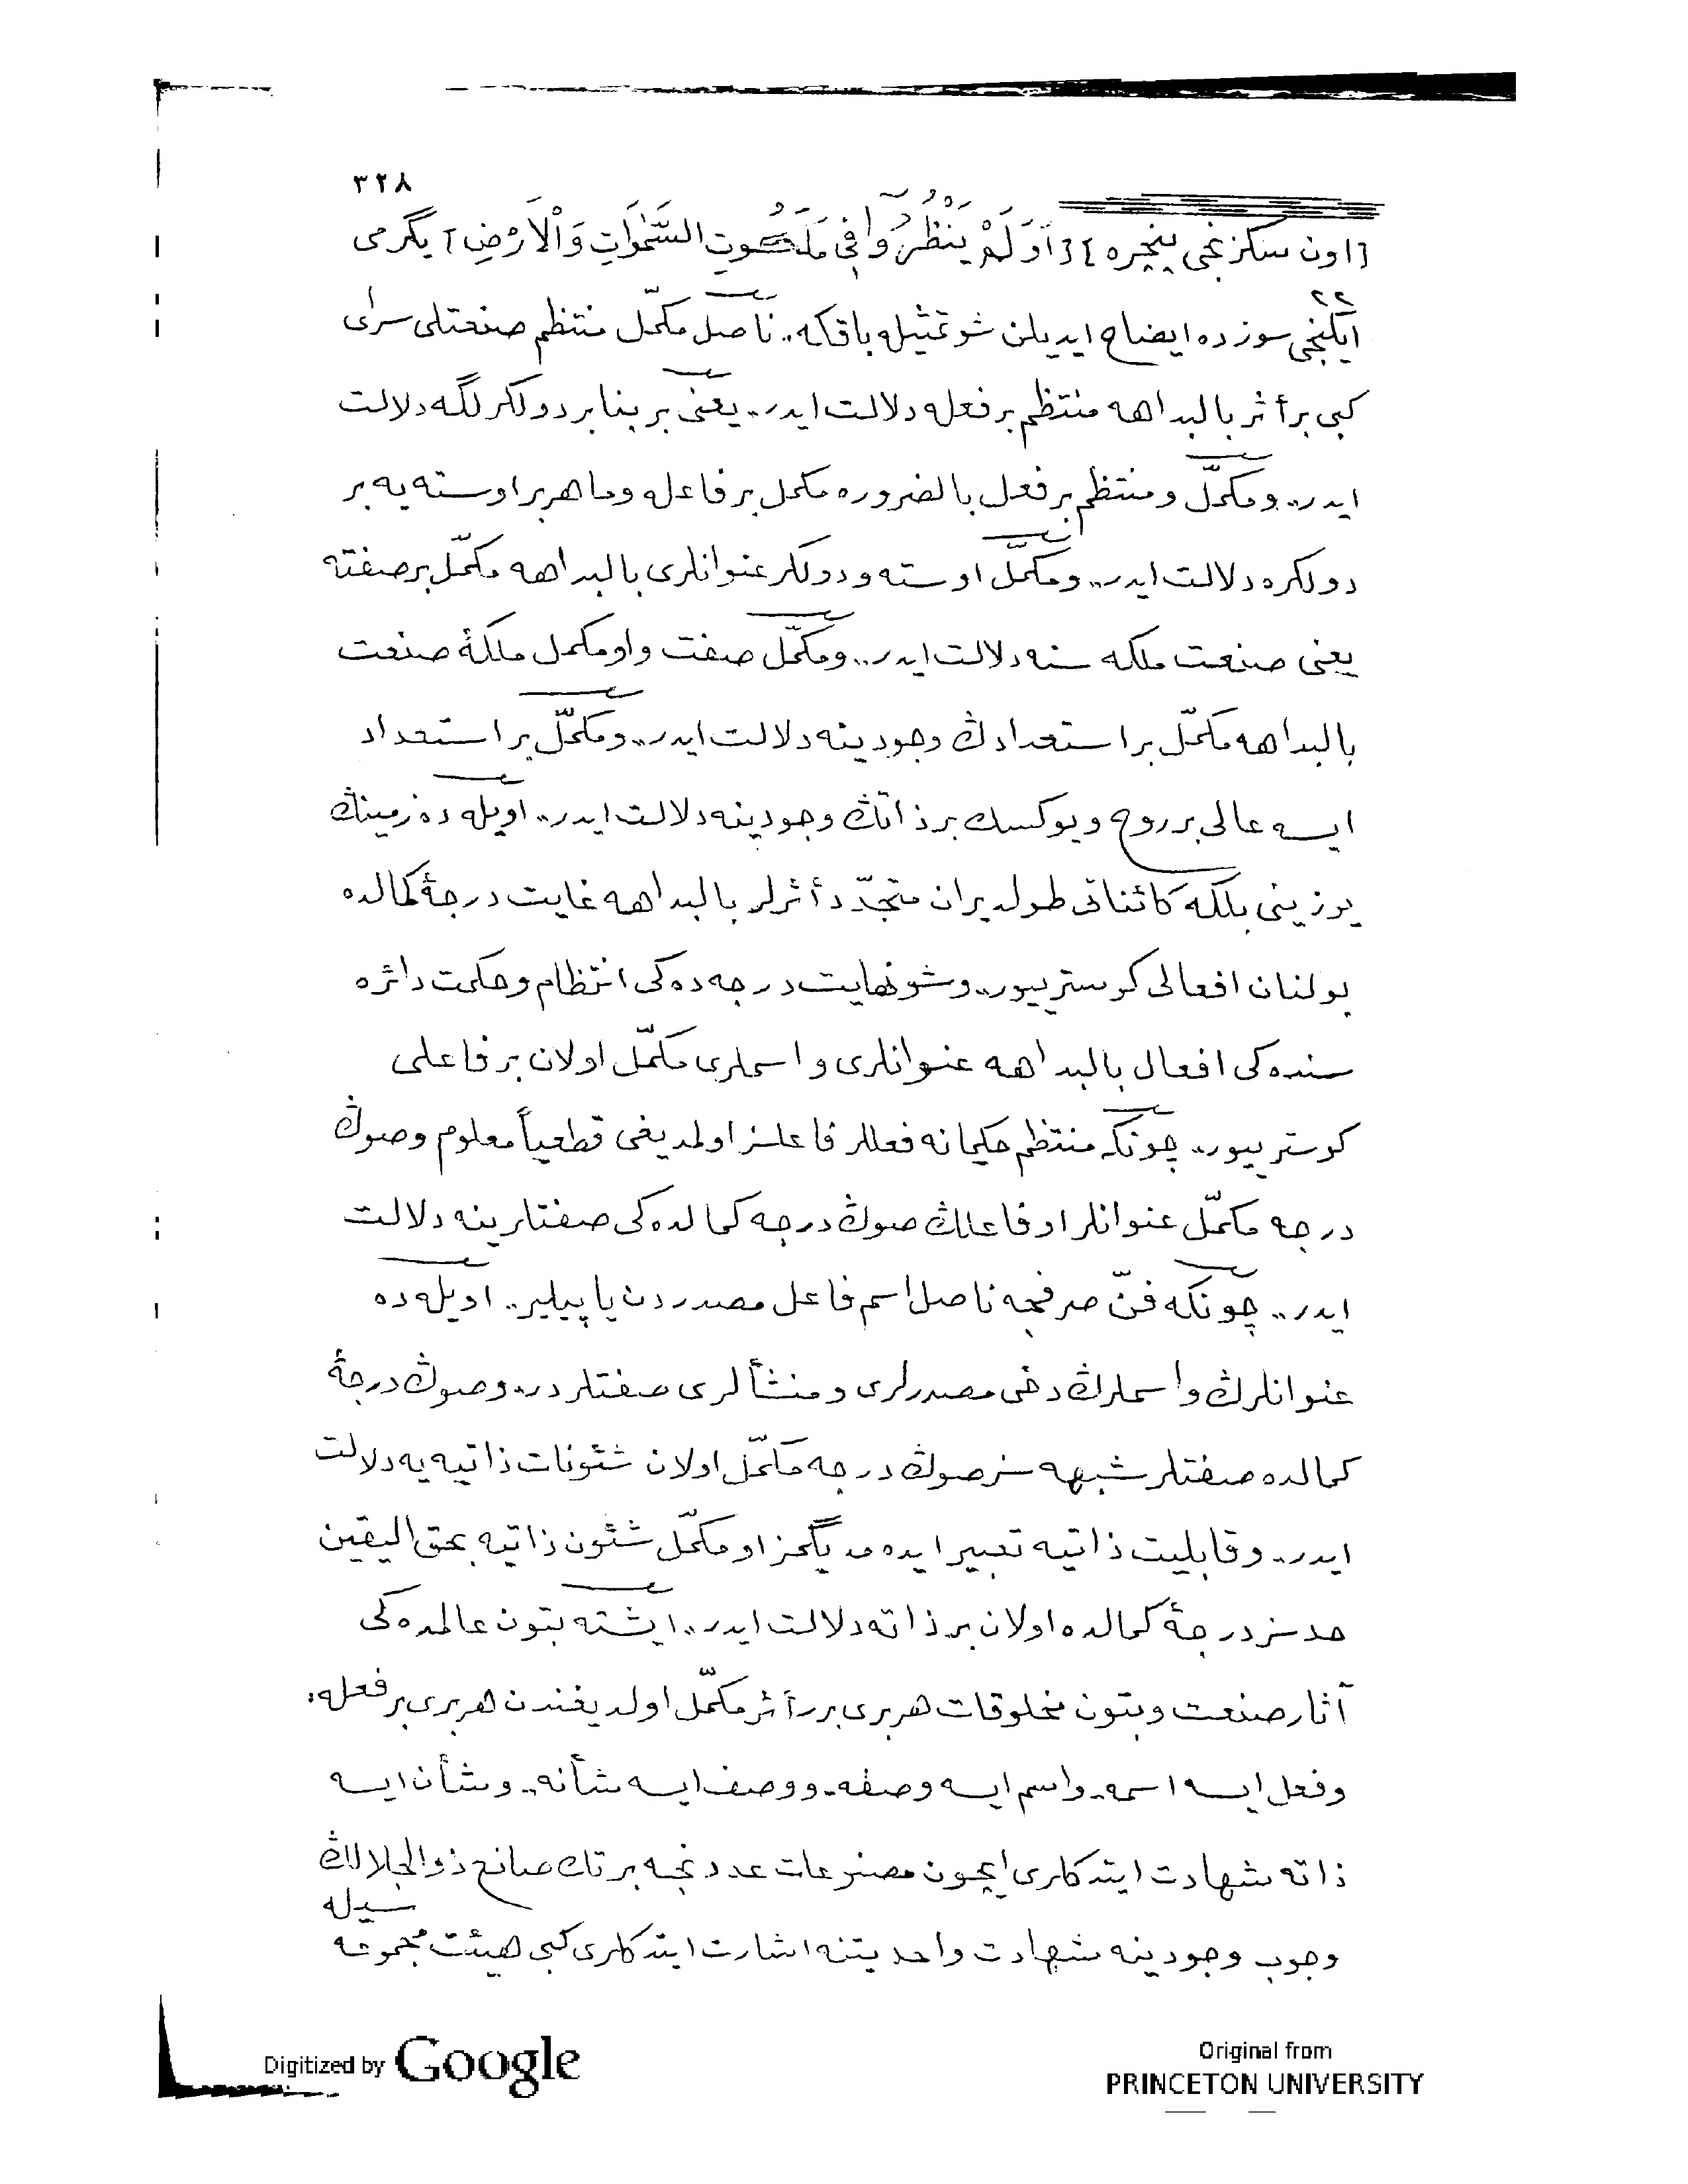 ٣٢٨
[اون سكزنجى پنجره] [اَوَلَمْ يَنْظُرُوا فِى مَلَكُوتِ السَّمٰوَاتِ وَالْاَرْضِ] يگرمى
٢٢
ايكنجى سوزده ايضاح ايديلن شو تمثيله باقكه.. ناصل مكمّل منتظم صنعتلى سراى
كبى بر أثر بالبداهه منتظم بر فعله دلالت ايدر.. يعنى بر بنا بر دولگرلگه دلالت
ايدر.. و مكمّل و منتظم بر فعل بالضروره مكمل بر فاعله و ماهر بر اوسته يه بر
دولگره دلالت ايدر.. و مكمّل اوسته و دولگر عنوانلرى بالبداهه مكمّل بر صفته
يعنى صنعت ملكه سنه دلالت ايدر.. و مكمّل صفت و او مكمل ملكۀ صنعت
بالبداهه مكمّل بر استعدادڭ وجودينه دلالت ايدر.. و مكمّل بر استعداد
ايسه عالى بر روح و يوكسك بر ذاتڭ وجودينه دلالت ايدر.. اويله ده زمينڭ
يوزينى بلكه كائناتى طولديران متجدّد أثرلر بالبداهه غايت درجۀ كمالده
بولنان افعالى گوسترييور.. و شو نهايت درجه ده كى انتظام و حكمت دائره
سنده كى افعال بالبداهه عنوانلرى و اسملرى مكمّل اولان بر فاعلى
گوسترييور.. چونكه منتظم حكيمانه فعللر فاعلسز اولمديغى قطعياً معلوم و صوڭ
درجه مكمّل عنوانلر او فاعلڭ صوڭ درجه كمالده كى صفتلرينه دلالت
ايدر.. چونكه فنّ صرفجه ناصل اسم فاعل مصدردن ياپيلير.. اويله ده
عنوانلرڭ و اسملرڭ دخى مصدرلرى و منشألرى صفتلردر.. و صوڭ درجۀ
كمالده صفتلر شبهه سز صوڭ درجه مكمّل اولان شئونات ذاتيه يه دلالت
ايدر.. و قابليت ذاتيه تعبير ايده مديگمز او مكمّل شئون ذاتيه بحق اليقين
حدسز درجۀ كمالده اولان بر ذاته دلالت ايدر.. ايشته بتون عالمده كى
آثار صنعت و بتون مخلوقات هر برى برر أثر مكمّل اولديغندن هر برى بر فعله:
و فعل ايسه اسمه.. و اسم ايسه وصفه.. و وصف ايسه شأنه.. و شأن ايسه
ذاته شهادت ايتدكلرى ايچون مصنوعات عددنجه بر تك صانع ذوالجلالڭ
وجوب وجودينه شهادت و احديتنه اشارت ايتدكلرى كبى هيئت مجموعه
سيله
Digitized by Google
Original from
PRINCETON UNIVERSITY